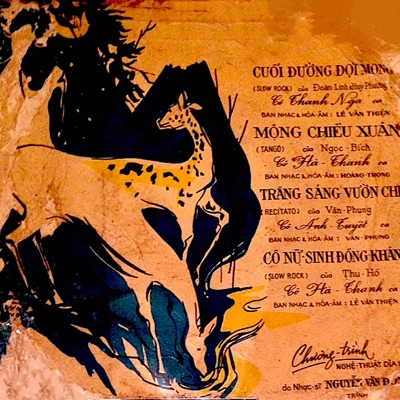 CUỐI ĐƯỜNG ĐỢI MONG
(SLOW ROCK) của Đoàn Linh & Huy Phương
Cô Thanh Nga ca
BAN NHẠC & HÒA-ÂM : LÊ VĂN THIỆN
MỘNG CHIỀU XUÂN
(TANGO) của Ngọc-Bích
Cô Hà-Thanh ca
BAN NHẠC & HÒA-ÂM : HOÀNG-TRỌNG
TRĂNG SÁNG VƯỜN CH
(RECITATO) của Văn-Phụng
Cô Ánh-Tuyết ca
BAN NHẠC & HÒA-ÂM : VĂN-PHỤNG
CÔ NỮ-SINH ĐỒNG KHÁN
(SLOW ROCK) của Thu-Hồ
Cô Hà-Thanh ca
BAN NHẠC & HÒA-ÂM : LÊ VĂN THIỆN
Chương-trình
NGHỆ-THUẬT DĨA
do Nhạc-sĩ NGUYỄN VĂN ĐÔN
TRÌNH